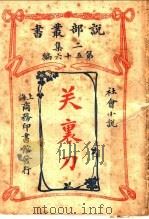 說部叢書
二集
第五十六編
社會小說
笑裏刀
上海
商務印書館發行